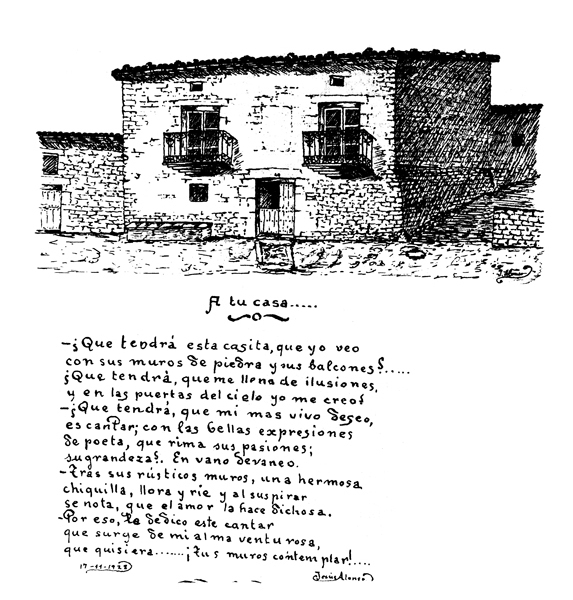 A tu casa.....
-¿Que tendrá esta casita, que yo veo
con sus muros de piedra y sus balcones?.....
¿Que tendrá, que me llena de ilusiones,
y en las puertas del cielo yo me creo?
-¿Que tendrá, que mi mas vivo deseo,
es cantar; con las bellas expresiones
de poeta, que rima sus pasiones;
su grandeza?. En vano devaneo.
-Tras sus rústicos muros, una hermosa
chiquilla, llora y rie y al suspirar
se nota, que el amor la hace dichosa.
-Por eso, le dedico este cantar
que surge de mi alma venturosa,
que quisiera.......¡Tus muros contemplar!....
Jesús Alonso